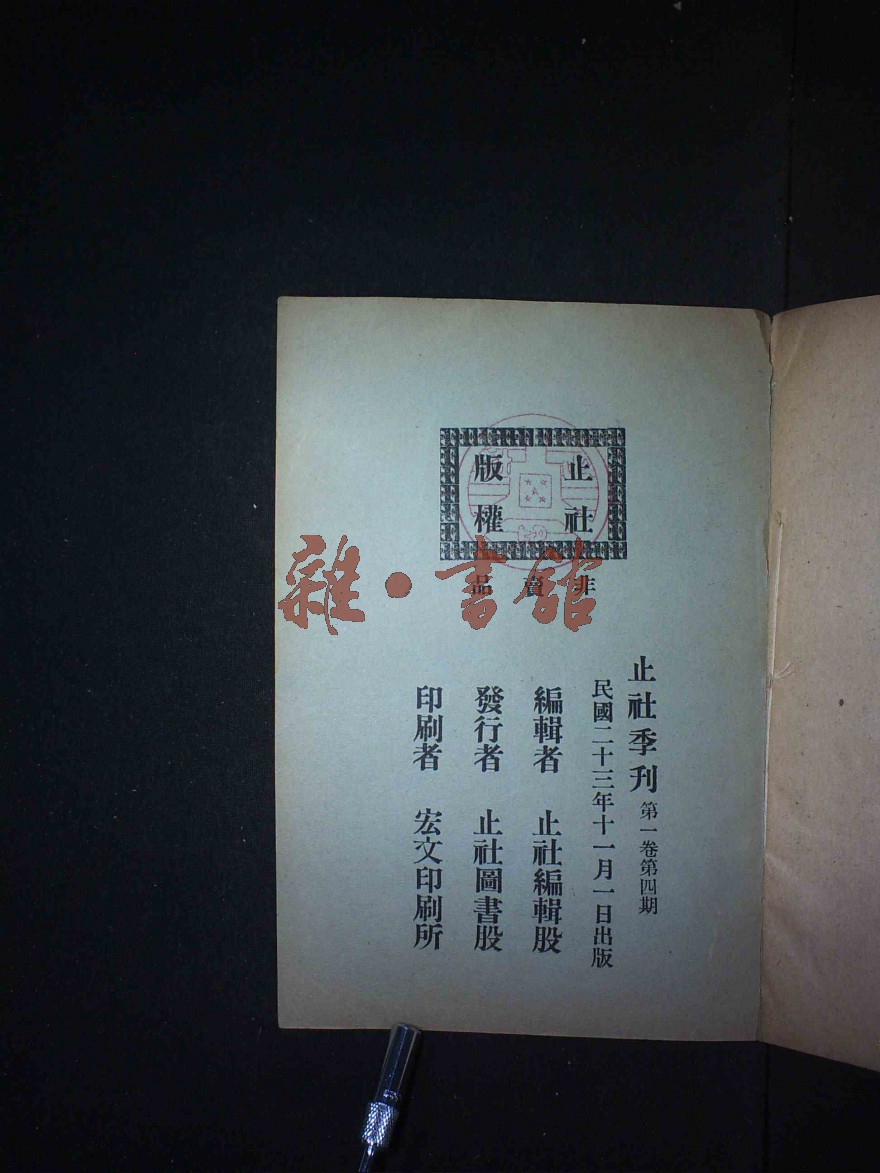 止社
版權
非賣品
雜·書館
止社季刊 第一卷第四期
民國二十三年十一月一日出版
編輯者 止社編輯股
發行者 止社圖書股
印刷者 宏文印刷所